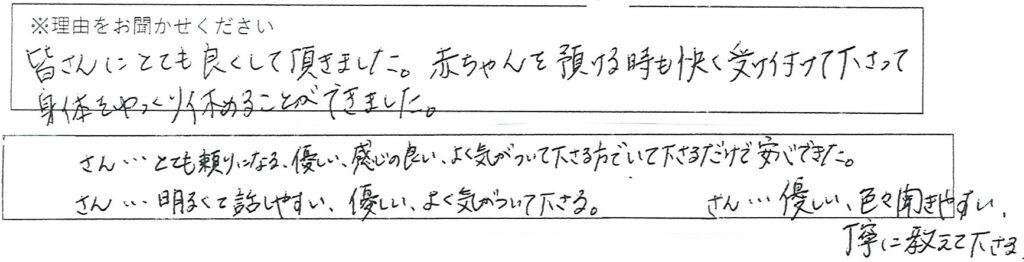 ※理由をお聞かせください
皆さんにとても良くして頂きました。赤ちゃんを預ける時も快く受け付けて下さって
身体をゆっくり休めることができました。
さん…とても頼りになる、優しい、感じの良い、よく気がついて下さる方でいて下さるだけで安心できた。
さん…明るくて話しやすい、優しい、よく気がついて下さる。 さん…優しい、色々聞きやすい、
丁寧に教えて下さる